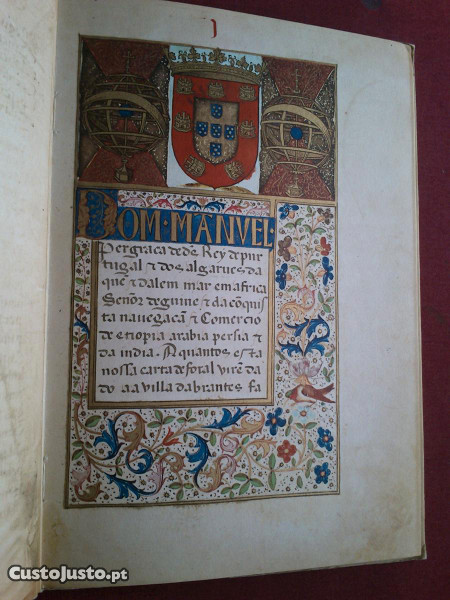 DOM · MANVEL ·
Per graca de ds̃ Rey de pur
tugal ⁊ dos algarues da
que ⁊ dalem mar em africa
Senor̃ de guine ⁊ da cõquis
ta nauegacam̃ ⁊ Comercio
de etiopia arabia persia ⁊
da india. A quantos esta
nossa carta de foral virẽ da
do a a villa dabrantes fa
CustoJusto.pt